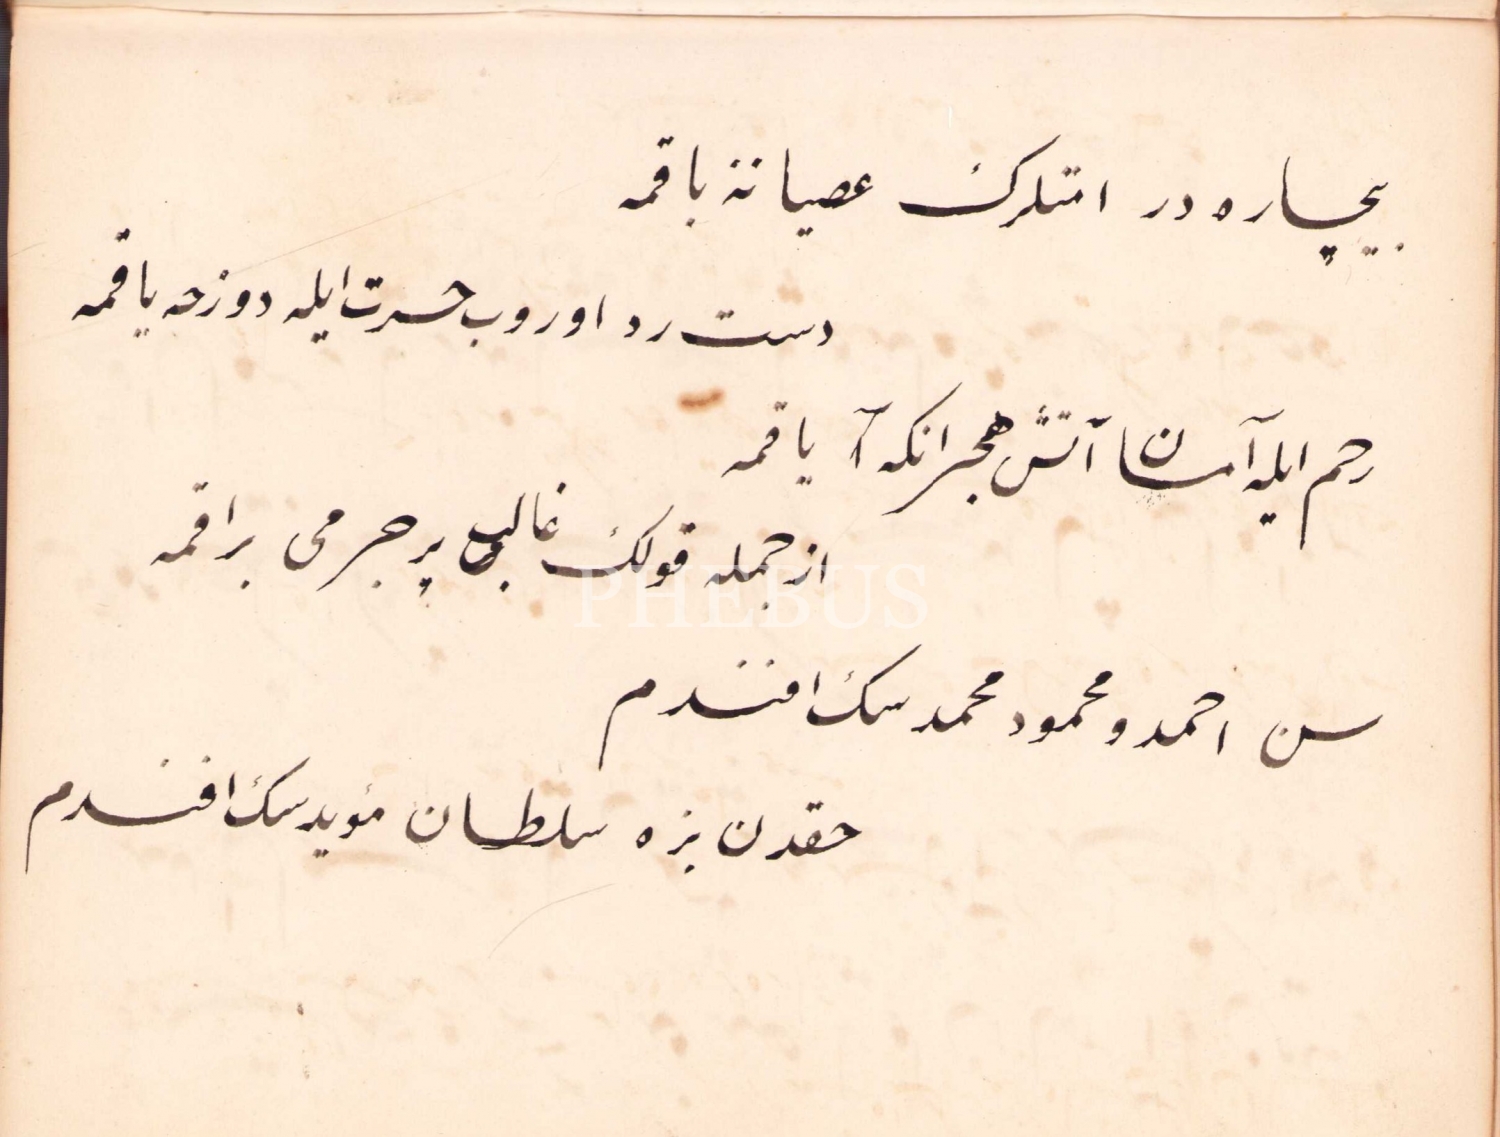 بیچاره در امتلرك عصیاننه باقمه
دست رد اوروب حسرت ایله دوزخه یاقمه
رحم ایله آمان آتش هجرانكه آیاقمه
از جمله قولك غالب پر جرمی براقمه
سن احمد و محمود محمد سك افندم
حقدن بزه سلطان مؤید سك افندم
PHEBUS